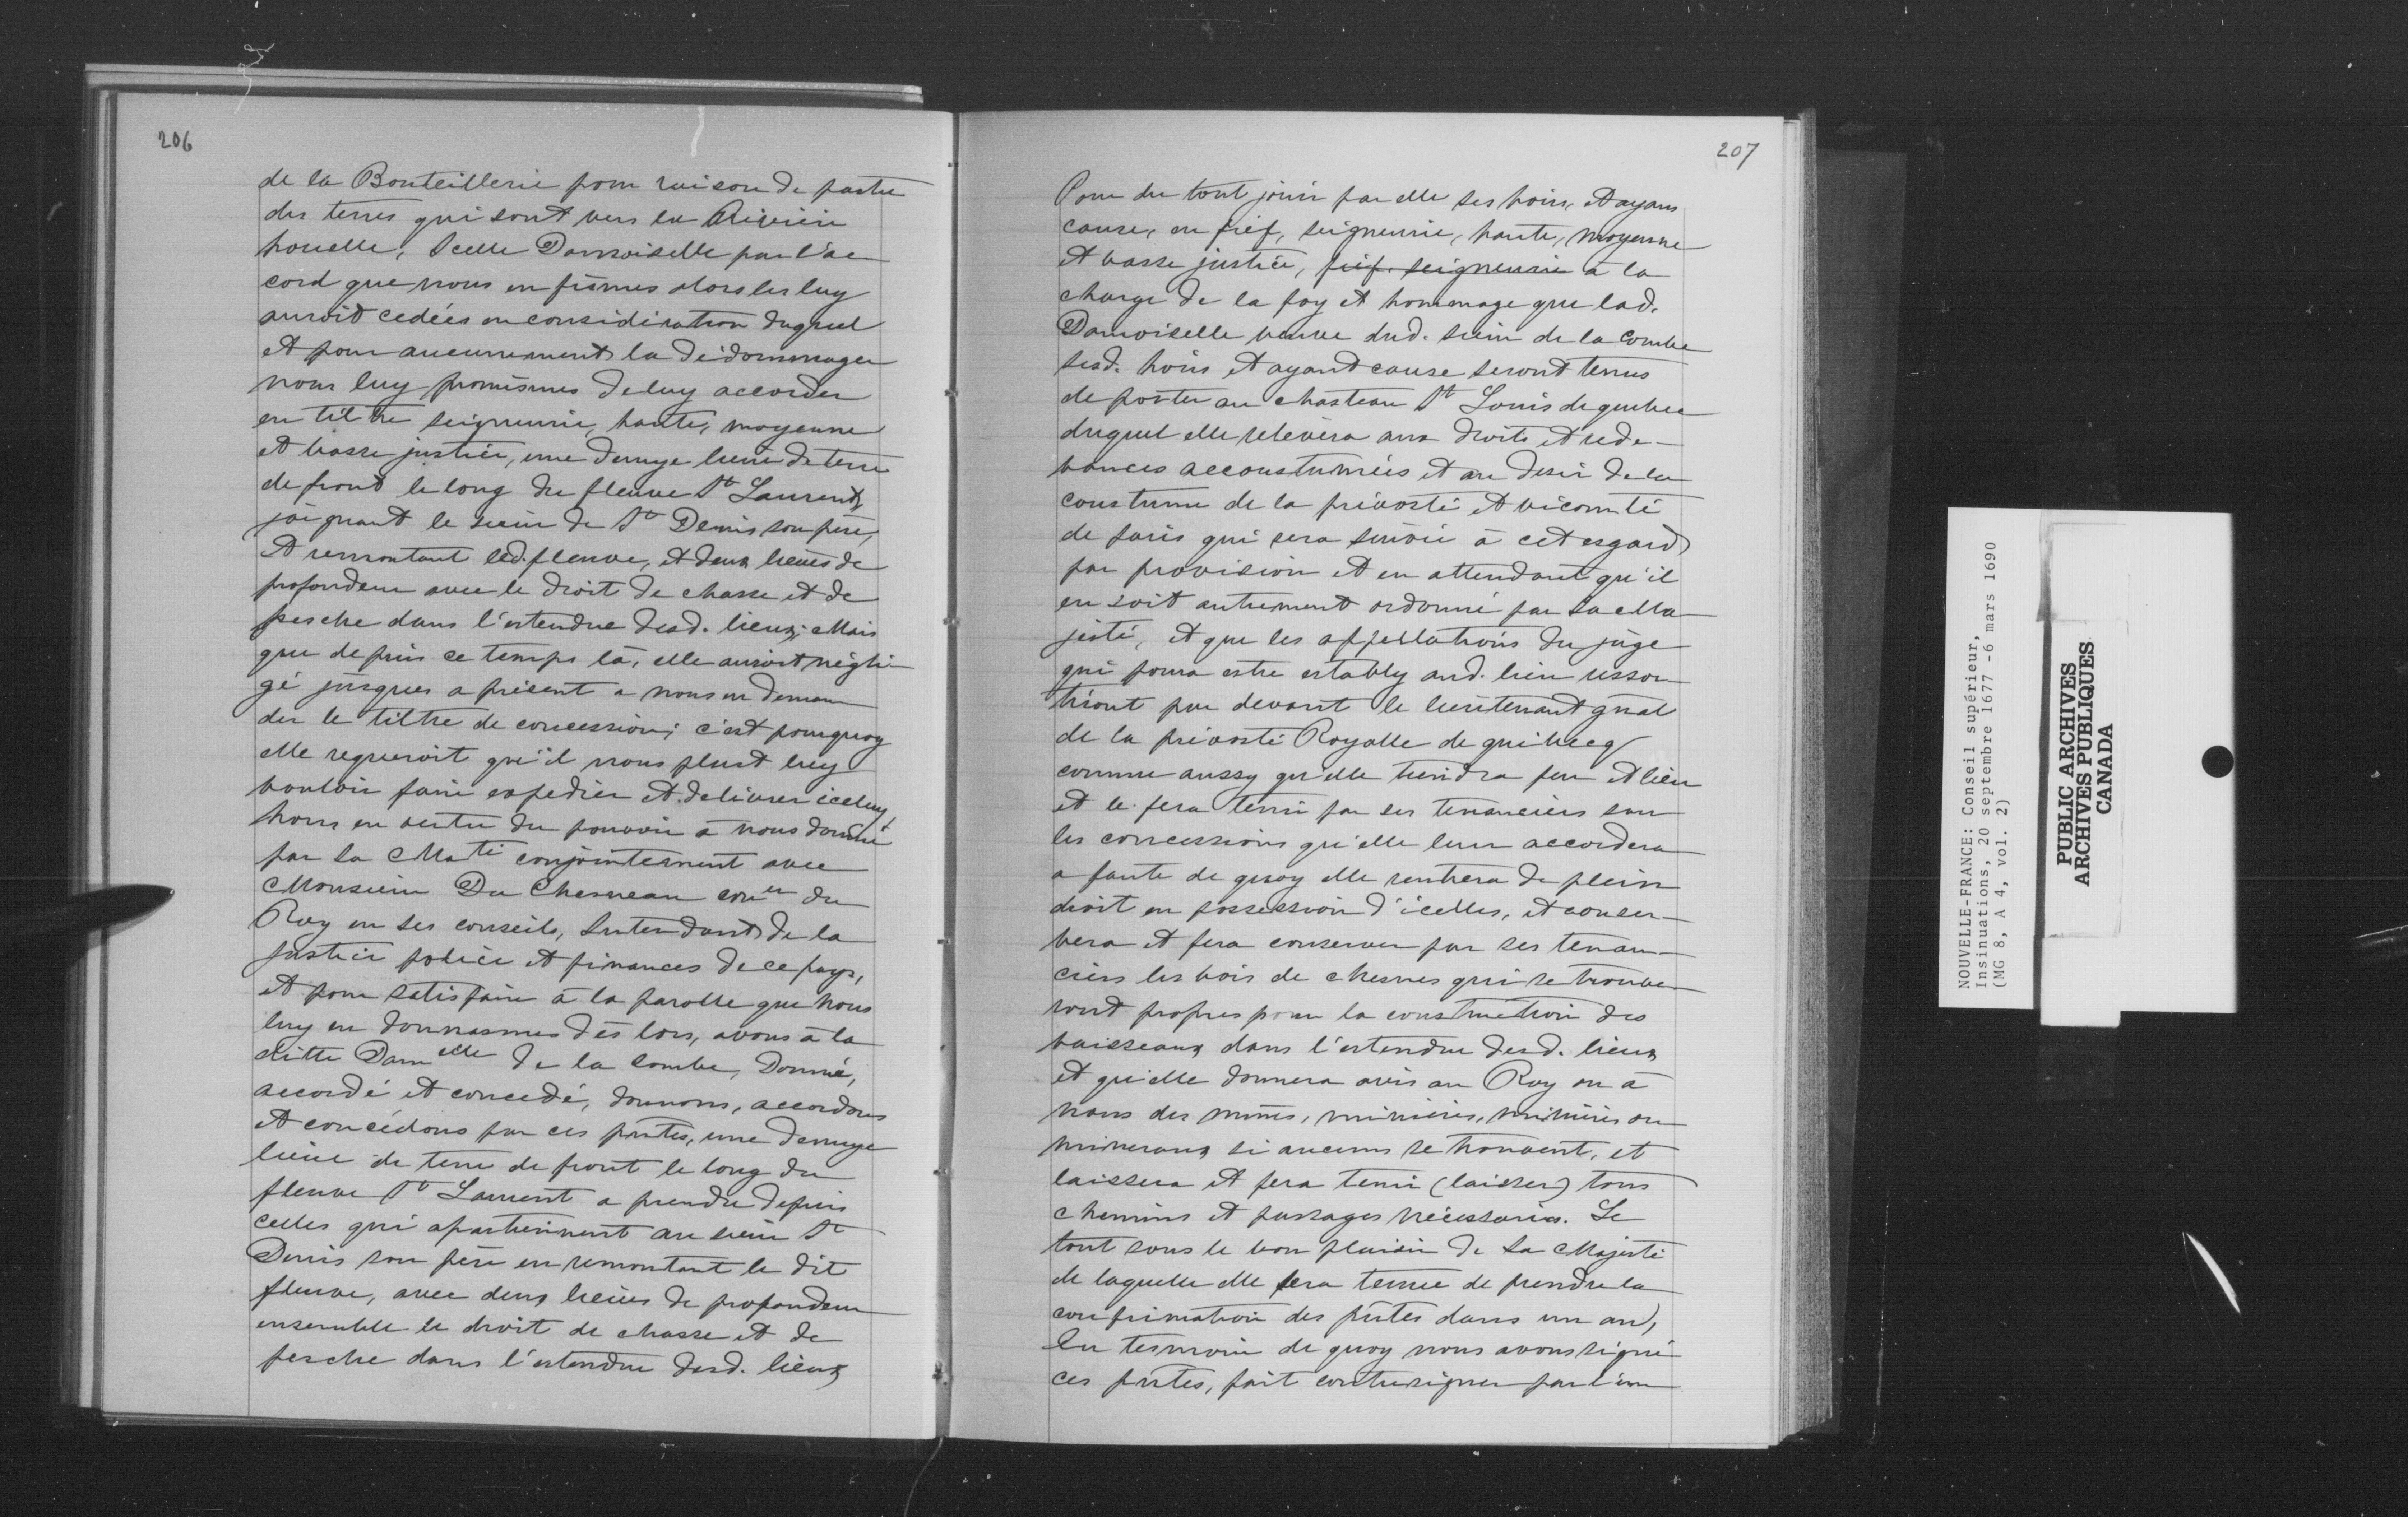 206
de la Bouteillerie pour raison de partie
des terres qui sont vers la Rivière
houelle, Icelle Damoiselle par l'ac
cord que nous en fismes alors les luy
auroit cedées en considération duquel
et pour aucunement la dédommager
nous luy promismes de luy accorder
en tiltre seigneurie, haute, moyenne
et basse justice, une demye lieue de terre
de front le long du fleuve St Laurent,
joignant le sieur de St Denis son père,
Et remontant led. fleuve, et deux lieues de
profondeur avec le droit de chasse et de
pesche dans l'estendue desd. lieux; Mais
que depuis ce temps là, elle auroit négli-
gé jusques a présent a nous en deman
der le tiltre de concession; c'est pourquoy
elle requeroit qu'il nous plust luy
vouloir faire expedier et delivrer iceluy,
Nous en vertu du pouvoir à nous donné
par sa Mati conjointement avec
Monsieur Du Chesneau coner du
Roy en ses conseils, Intendant de la
Justice police et finances de ce pays,
et pour satisfaire à la parolle que nous
luy en donnasmes dès lors, avons à la
ditte Damelle de la Combe, Donné,
accordé et concedé, donnons, accordons
et concédons par ces pntes, une demye
lieue de terre de front le long du
fleuve St Laurent a prendre depuis
celles qui apartiennent au sieur St
Denis son père en remontant le dit
fleuve, avec deux lieues de profondeur
ensemble le droit de chasse et de
pesche dans l'estendue desd. lieux
207
Pour du tout jouir par elle ses hoirs, et ayans
cause, en fief, seigneurie, haute, moyenne
et basse justice, fief. seigneurie à la
charge de la foy et hommage que lad.
Damoiselle veuve dud. sieur de la Combe
sesd. hoirs et ayant cause seront tenus
de porter au chasteau St Louis de quebec
duquel elle relevera aux droits et rede-
vances accoustumées et au desir de la
coustume de la prévosté et vicomté
de paris qui sera suivie à cet esgard
par provision et en attendant qu'il
en soit autrement ordonné par Sa Ma
jesté, et que les appellations du juge
qui poura estre estably aud. lieu resso
rtiront par devant le lieutenant gñal
de la prévosté Royalle de quebecq
comme aussy qu'elle tiendra feu et lieu
et le fera tenir par ses tenanciers sur
les concessions qu'elle leur accordera
a faute de quoy elle rentrera de plein
droit en possession d'icelles, et conser-
vera et fera conserver par ses tenan-
ciers les bois de chesnes qui se trouve
ront propres pour la construction des
vaisseaux dans l'estendue desd. lieux
et qu'elle donnera avis au Roy ou à
nous des mines, minières, minières ou
mineraux si aucuns se trouvent, et
laissera et fera tenir (laisser) tous
chemins et passages nécessaires. Le
tout sous le bon plaisir de Sa Majesté
de laquelle elle sera tenue de prendre la
confirmation des pntes dans un an,
En tesmoin de quoy nous avons signé
ces pntes, fait contresigner par l'un
NOUVELLE-FRANCE: Conseil supérieur,
Insinuations, 20 septembre 1677 -6 mars 1690
(MG 8, A 4, vol. 2)
PUBLIC ARCHIVES
ARCHIVES PUBLIQUES
CANADA